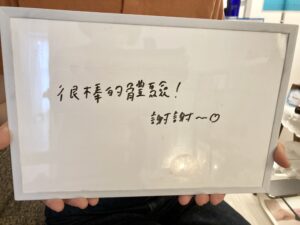 很棒的體驗！
謝謝～♡